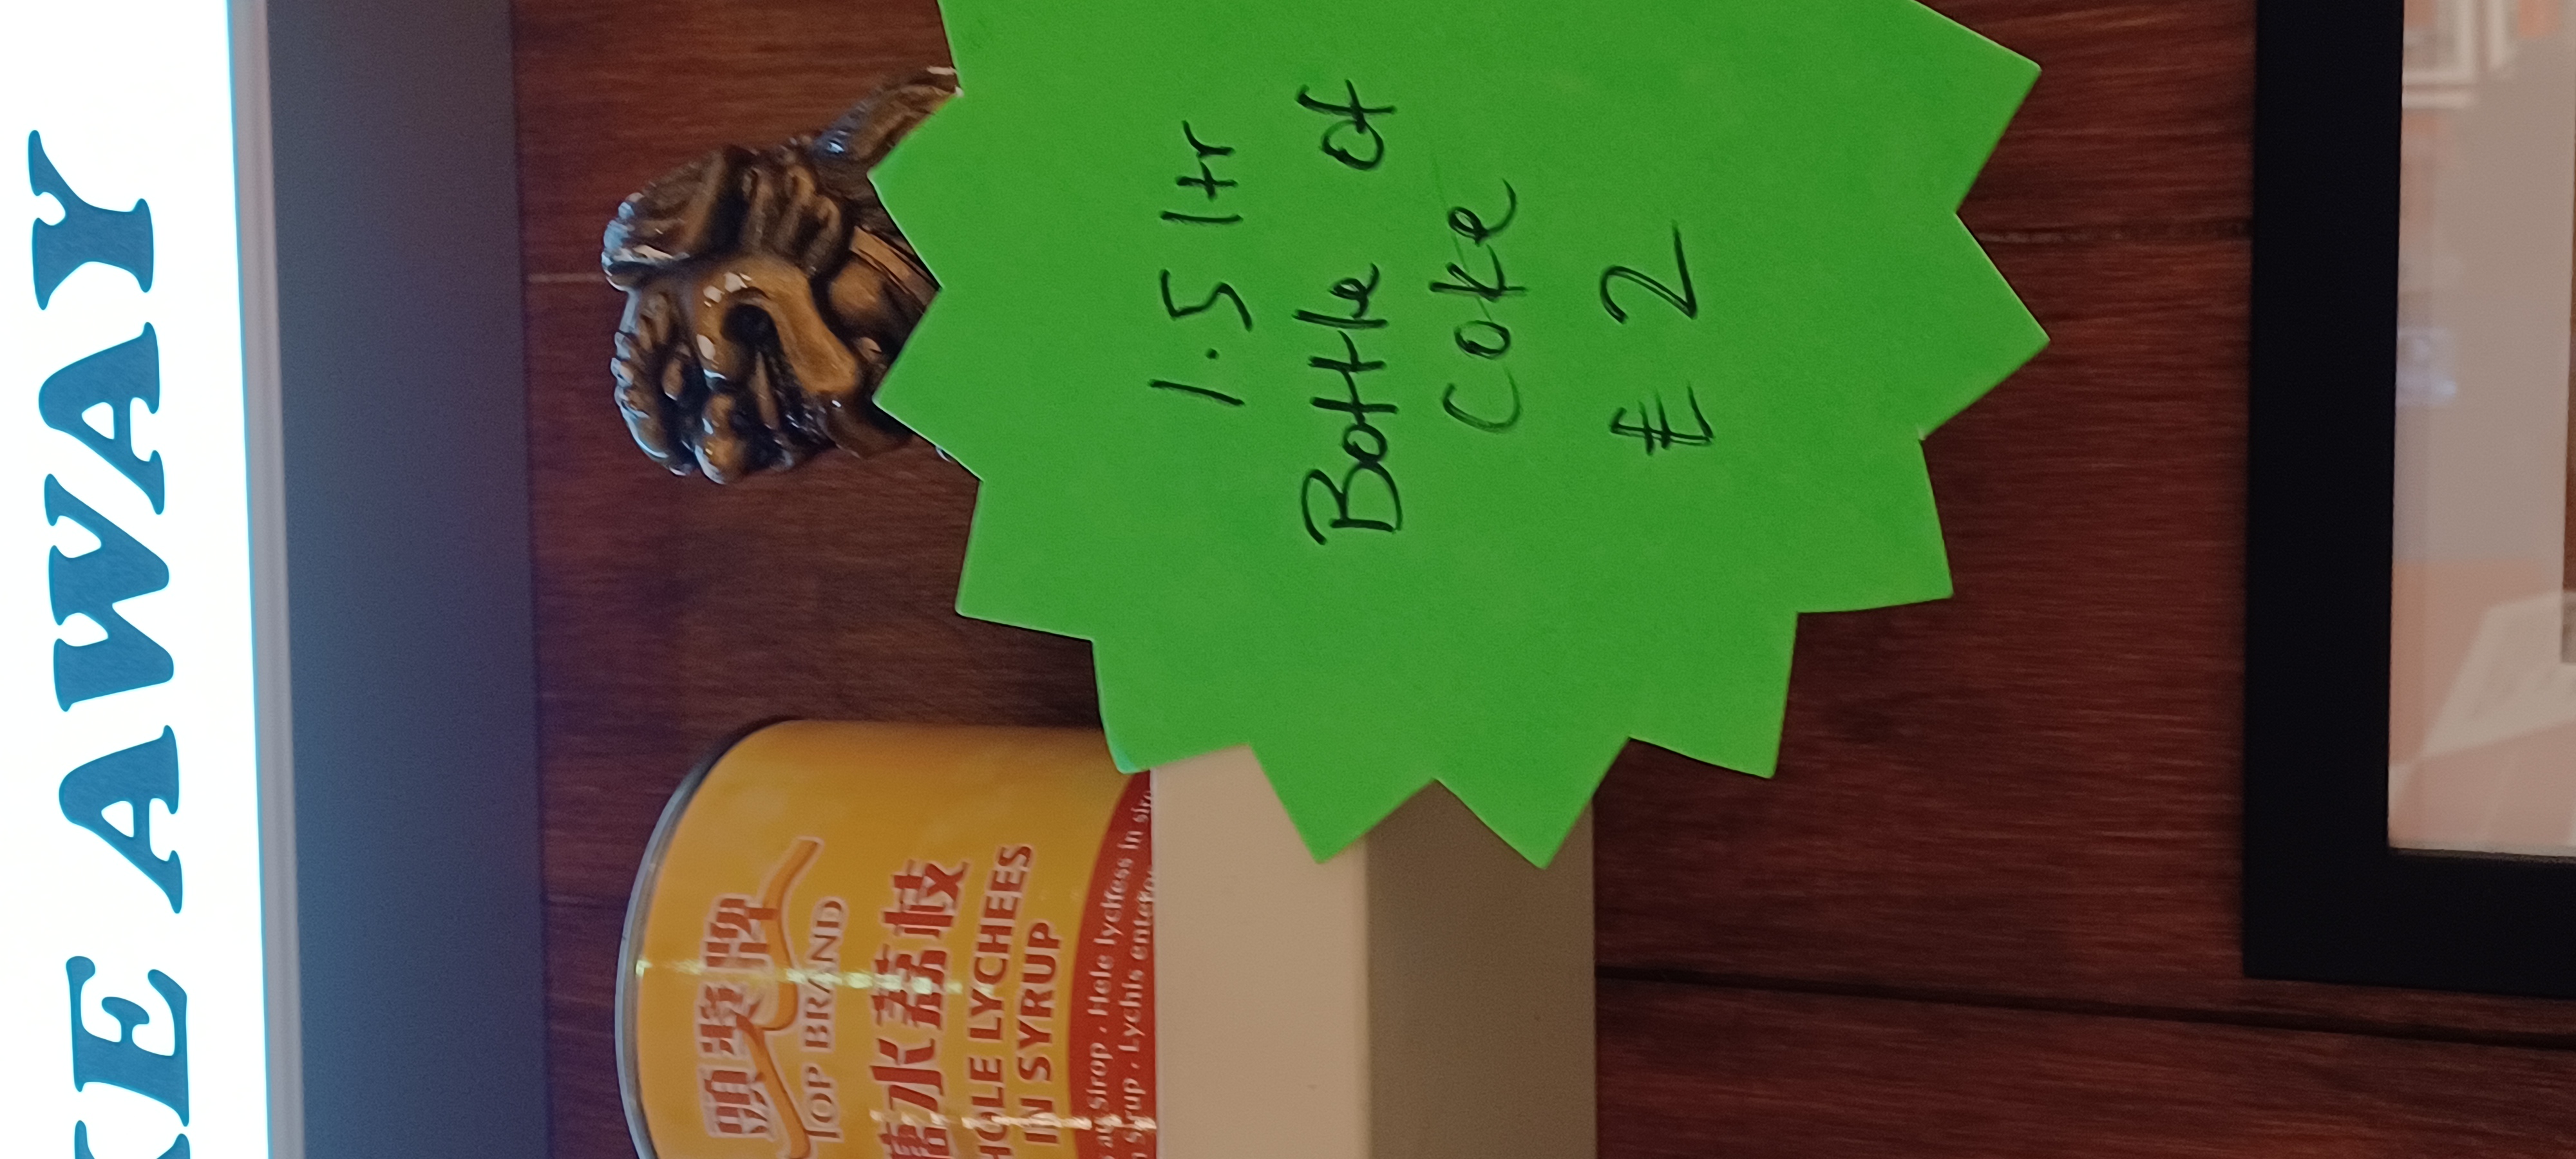 KE AWAY
頭獎牌
TOP BRAND
糖水荔枝
HOLE LYCHEES
IN SYRUP
au Sirop . Hele lychess in
Sirup . Lychis
1.5 ltr
Bottle of
Coke
£ 2